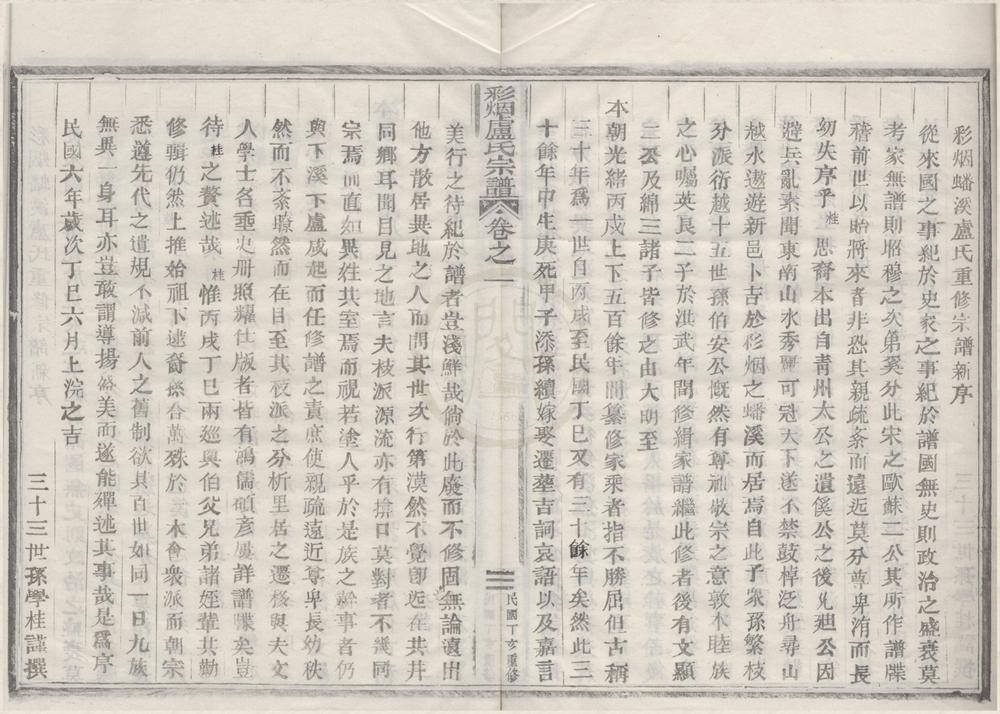 彩烟蟠溪盧氏重修宗譜新序
從來國之事紀於史家之事紀於譜國無史則政治之盛衰莫
考家無譜則昭穆之次第奚分此宋之歐蘇二公其所作譜牒
稽前世以貽將來者非恐其親疏紊而遠近莫分尊卑淆而長
幼失序乎桂思裔本出自青州太公之遺傒公之後兄廸公因
避兵亂素聞東南山水秀麗可冠天下遂不禁鼓棹泛舟尋山
越水遨遊新邑卜吉於彩烟之蟠溪而居焉自此子衆孫繁枝
分派衍越十五世孫伯安公慨然有尊祖敬宗之意敦本睦族
之心囑英艮二子於洪武年間修緝家譜繼此修者後有文顯
三公及綿三諸子皆修之由大明至
本朝光緒丙戌上下五百餘年間纂修家乘者指不勝屈但古稱
三十年為一世自丙戌至民國丁巳又有三十餘年矣然此三
十餘年中生庚死甲子添孫續嫁娶遷塟吉詞哀語以及嘉言
彩烟盧氏宗譜 卷之一
三 民國丁亥重修
美行之待紀於譜者豈淺鮮哉倘於此廢而不修固無論遠出
他方散居異地之人而問其世次行第漠然不覺即近在共井
同鄉耳聞目見之地言夫枝派源流亦有捨口莫對者不幾同
宗焉而直如異姓共室焉而視若塗人乎於是族之幹事者仍
與下溪下盧咸起而任修譜之責庶使親疏遠近尊卑長幼秩
然而不紊瞭然而在目至其枝派之分析里居之遷移與夫文
人學士各垂史册照耀仕版者皆有鴻儒碩彦屢詳譜牒矣豈
待桂之贅述哉桂惟丙戌丁巳兩廵與伯父兄弟諸姪輩共勷
修輯仍然上推始祖下逮裔孫合萬殊於一本會衆派而朝宗
悉遵先代之遺規不減前人之舊制欲其百世如同一日九族
無異一身耳亦豈敢謂導揚俗美而遂能殫述其事哉是為序
民國六年歲次丁巳六月上浣之吉
三十三世孫學桂謹撰